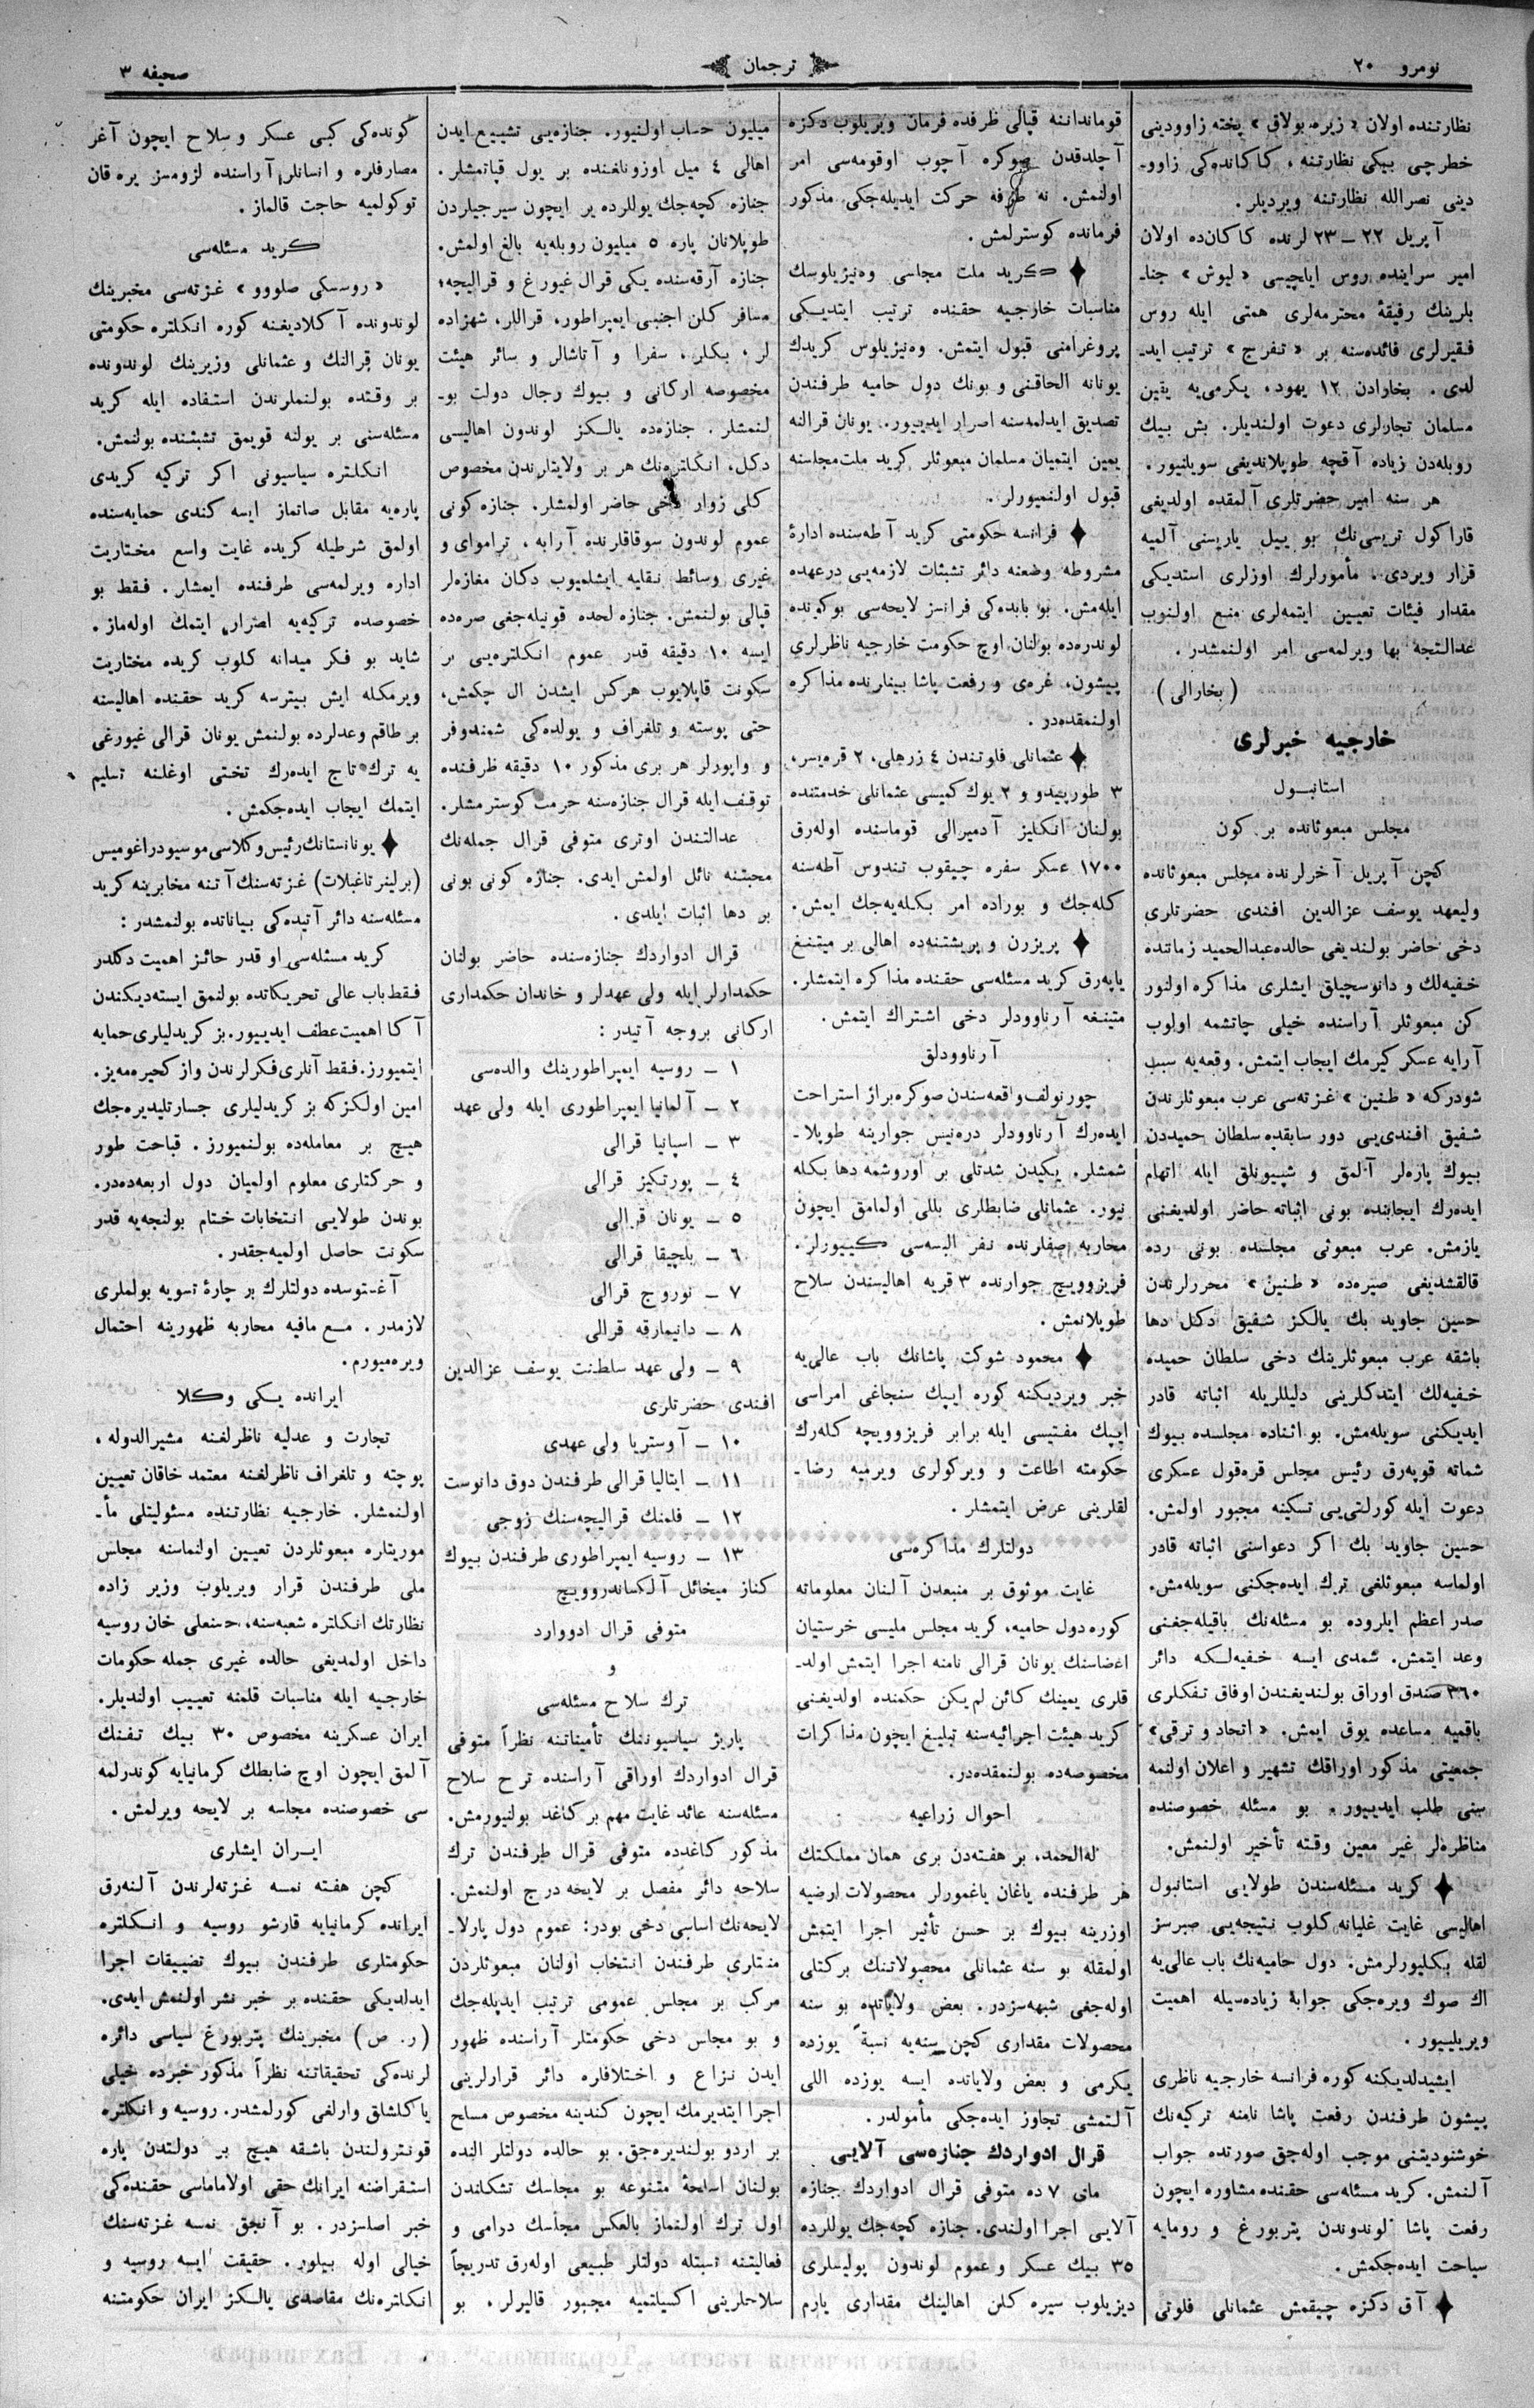 نومرو ٢٠
ترجمان
صحیفه ٣
نظارتنده اولان «زیره‌بولاق» پخته زاوودینی
خطرچی بیکی نظارتنه، کاکانده‌کی زاوو-
دینی نصرالله نظارتنه ویردیلر.
آپریل ٢٢ ــ ٢٣ لرنده کاکان‌ده اولان
امیر سراینده روس ایلچیسی «لیوش» جنا-
بلرینك رفیقهٔ محترمه‌لری همتی ایله روس
فقیرلری فائده‌سنه بر «تفرج» ترتیب اید-
لدی. بخارادن ١٢ یهود، یکرمی‌یه یقین
مسلمان تجارلری دعوت اولندیلر. بش بیك
روبله‌دن زیاده آقچه طوپلاندیغی سویلنیور.
هر سنه امیر حضرتلری آلمقده اولدیغی
قاراکول تریسی‌نك بو ییل یاریسنی آلمیه
قرار ویردی. مأمورلرك اوزلری استدیکی
مقدار فیئات تعیین ایتمه‌لری منع اولنوب
عدالتجه بها ویرلمه‌سی امر اولنمشدر.
(بخارالی)
خارجیه خبرلری
استانبــول
مجلس مبعوثانده بر کون
کچن آپریل آخرلرنده مجلس مبعوثانده
ولیعهد یوسف عزالدین افندی حضرتلری
دخی حاضر بولندیغی حالده عبدالحمید زماننده
خفیه‌لك و دانوسچیلق ایشلری مذاکره اولنور
کن مبعوثلر آراسنده خیلی چاتشمه اولوب
آرایه عسکر کیرمك ایجاب ایتمش. وقعه‌یه سبب
شودرکه «طنین» غزته‌سی عرب مبعوثلرندن
شفیق افندی‌یی دور سابقده سلطان حمیددن
بیوك پاره‌لر آلمق و شپیونلق ایله اتهام
ایده‌رك ایجابنده بونی اثباته حاضر اولدیغنی
یازمش. عرب مبعوثی مجلسده بونی رده
قالقشدیغی صیره‌ده «طنین» محررلرندن
حسین جاوید بك یالکز شفیق دکل دها
باشقه عرب مبعوثلرینك دخی سلطان حمیده
خفیه‌لك ایتدکلرینی دلیللریله اثباته قادر
ایدیکنی سویله‌مش. بو اثناده مجلسده بیوك
شماته قوپه‌رق رئیس مجلس قره‌قول عسکری
دعوت ایله کورلتی‌یی تسکینه مجبور اولمش.
حسین جاوید بك اکر دعواسنی اثباته قادر
اولماسه مبعوثلغی ترك ایده‌جکنی سویله‌مش.
صدر اعظم ایلروده بو مسئله‌نك باقیله‌جغنی
وعد ایتمش. شمدی ایسه خفیه‌لکه دائر
٣٦٠ صندق اوراق بولندیغندن اوفاق تفکلری
باقمیه مساعده یوق ایمش. «اتحاد و ترقی»
جمعیتی مذکور اوراقك تشهیر و اعلان اولنمه
سنی طلب ایدییور. بو مسئله خصوصنده
مناظره‌لر غیر معین وقته تأخیر اولنمش.
✦ کرید مسئله‌سندن طولایی استانبول
اهالیسی غایت غلیانه کلوب نتیجه‌یی صبرسز
لقله بکلیورلرمش: دول حامیه‌نك باب عالی‌یه
اك صوك ویره‌جکی جوابه زیاده‌سیله اهمیت
ویریلییور.
ایشیدلدیکنه کوره فرانسه خارجیه ناظری
پیشون طرفندن رفعت پاشا نامنه ترکیه‌نك
خوشنودیتنی موجب اوله‌جق صورتده جواب
آلنمش. کرید مسئله‌سی حقنده مشاوره ایچون
رفعت پاشا لوندوندن پتربورغ و رومایه
سیاحت ایده‌جکمش.
✦ آق دکزه چیقمش عثمانلی فلوتی
قوماندانننه قپالی ظرفده فرمان ویریلوب دکزه
آچلدقدن صوکره آچوب اوقومه‌سی امر
اولنمش. نه طرفه حرکت ایدیله‌جکی مذکور
فرمانده کوسترلمش.
✦ کرید ملت مجلسی وه‌نیزیلوسك
مناسبات خارجیه حقنده ترتیب ایتدیکی
پروغرامنی قبول ایتمش. وه‌نیزیلوس کریدك
یونانه الحاقنی و بونك دول حامیه طرفندن
تصدیق ایدلمه‌سنه اصرار ایدییور. یونان قرالنه
یمین ایتمیان مسلمان مبعوثلر کرید ملت‌مجلسنه
قبول اولنمیورلر.
✦ فرانسه حکومتی کرید آطه‌سنده ادارهٔ
مشروطه وضعنه دائر تشبثات لازمه‌یی درعهده
ایله‌مش. بو بابده‌کی فرانسز لایحه‌سی بوکونده
لوندره‌ده بولنان اوچ حکومت خارجیه ناظرلری
پیشون، غره‌ی و رفعت پاشا بینلرنده مذاکره
اولنمقده‌در.
✦ عثمانلی فلوتندن ٤ زرهلی، ٢ قره‌یسر،
٣ طورپیدو و ٢ یوك کمیسی عثمانلی خدمتنده
بولنان انکلیز آدمیرالی قوماسنده اوله‌رق
١٧٠٠ عسکر سفره چیقوب تندوس آطه‌سنه
کله‌جك و بوراده امر بکله‌یه‌جك ایمش.
✦ پریزرن و پریشتنه‌ده اهالی بر میتنغ
یاپه‌رق کرید مسئله‌سی حقنده مذاکره ایتمشلر.
متینغه آرناوودلر دخی اشتراك ایتمش.
آرناوودلق
چورنولف واقعه‌سندن صوکره براز استراحت
ایده‌رك آرناوودلر دره‌نیس جوارینه طوپلا-
شمشلر. یکیدن شدتلی بر اوروشمه دها بکله
نیور. عثمانلی ضابطلری بللی اولمامق ایچون
محاربه صفلرنده نفر البسه‌سی کییورلر.
فریزوویچ جوارنده ٣ قریه اهالیسندن سلاح
طوپلانمش.
✦ محمود شوکت پاشانك باب عالی‌یه
خبر ویردیکنه کوره ایپك سنجاغی امراسی
ایپك مفتیسی ایله برابر فریزوویچه کله‌رك
حکومته اطاعت و ویرکولری ویرمیه رضا-
لقلرینی عرض ایتمشلر.
دولتلرك مذاکره‌سی
غایت موثوق بر منبعدن آلنان معلوماته
کوره دول حامیه، کرید مجلس ملیسی خرستیان
اعضاسنك یونان قرالی نامنه اجرا ایتمش اولد-
قلری یمینك کائن لم یکن حکمنده اولدیغنی
کرید هیئت اجرائیه‌سنه تبلیغ ایچون مذاکرات
مخصوصه‌ده بولنمقده‌در.
احوال زراعیه
له‌الحمد، بر هفته‌دن بری همان مملکتك
هر طرفنده یاغان یاغمورلر محصولات ارضیه
اوزرینه بیوك بر حسن تأثیر اجرا ایتمش
اولمقله بو سنه عثمانلی محصولاتنك برکتلی
اوله‌جغی شبهه‌سزدر. بعض ولایاتده بو سنه
محصولات مقداری کچن سنه‌یه نسبةً یوزده
یکرمی و بعض ولایاتده ایسه یوزده اللی
آلتمشی تجاوز ایده‌جکی مأمولدر.
قرال ادواردك جنازه‌سی آلایی
مای ٧ ده متوفی قرال ادواردك جنازه
آلایی اجرا اولندی. جنازه کچه‌جك یوللرده
٣٥ بیك عسکر و عموم لوندون پولیسلری
دیزیلوب سیره کلن اهالینك مقداری یارم
میلیون حساب اولنیور. جنازه‌یی تشییع ایدن
اهالی ٤ میل اوزونلغنده بر یول قپاتمشلر.
جنازه کچه‌جك یوللرده یر ایچون سیرجیلردن
طوپلانان پاره ٥ میلیون روبله‌یه بالغ اولمش.
جنازه آرقه‌سنده یکی قرال غیورغ و قرالیچه؛
مسافر کلن اجنبی ایمپراطور، قراللر، شهزاده
لر، بکلر، سفرا و آتاشالر و سائر هیئت
مخصوصه ارکانی و بیوك رجال دولت بو-
لنمشلر. جنازه‌ده یالکز لوندون اهالیسی
دکل، انکلتره‌نك هر بر ولایتلرندن مخصوص
کلی زوار دخی حاضر اولمشلر. جنازه کونی
عموم لوندون سوقاقلرنده آرابه، تراموای و
غیری وسائط نقلیه ایشلمیوب دکان مغازه‌لر
قپالی بولنمش. جنازه لحده قونیله‌جغی صره‌ده
ایسه ١٠ دقیقه قدر عموم انکلتره‌یی بر
سکونت قاپلایوب هرکس ایشدن ال چکمش،
حتی پوسته و تلغراف و یولده‌کی شمندوفر
و واپورلر هر بری مذکور ١٠ دقیقه ظرفنده
توقف ایله قرال جنازه‌سنه حرمت کوسترمشلر.
عدالتندن اوتری متوفی قرال جمله‌نك
محبتنه نائل اولمش ایدی. جنازه کونی بونی
بر دها اثبات ایلدی.
قرال ادواردك جنازه‌سنده حاضر بولنان
حکمدارلر ایله ولی عهدلر و خاندان حکمداری
ارکانی بروجه آتیدر:
١ ــ روسیه ایمپراطورینك والده‌سی
٢ ــ آلمانیا ایمپراطوری ایله ولی عهد
٣ ــ اسپانیا قرالی
٤ ــ پورتکیز قرالی
٥ ــ یونان قرالی
٦ ــ بلچیقا قرالی
٧ ــ نوروج قرالی
٨ ــ دانیمارقه قرالی
٩ ــ ولی عهد سلطنت یوسف عزالدین
افندی حضرتلری
١٠ ــ آوستریا ولی عهدی
١١ ــ ایتالیا قرالی طرفندن دوق دانوست
١٢ ــ فلمنك قرالیچه‌سنك زوجی
١٣ ــ روسیه ایمپراطوری طرفندن بیوك
کناز میخائل آلکساندروویچ
متوفی قرال ادووارد
و
ترك سلاح مسئله‌سی
پاریژ سیاسیوننك تأمیناتنه نظراً متوفی
قرال ادواردك اوراقی آراسنده ترح سلاح
مسئله‌سنه عائد غایت مهم بر کاغد بولنیورمش.
مذکور کاغدده متوفی قرال طرفندن ترك
سلاحه دائر مفصل بر لایحه درج اولنمش.
لایحه‌نك اساسی دخی بودر: عموم دول پارلا-
منتلری طرفندن انتخاب اولنان مبعوثلردن
مرکب بر مجلس عمومی ترتیب ایدیله‌جك
و بو مجلس دخی حکومتلر آراسنده ظهور
ایدن نزاع و اختلافلره دائر قرارلرینی
اجرا ایتدیرمك ایچون کندینه مخصوص مسلح
بر اردو بولندیره‌جق. بو حالده دولتلر النده
بولنان اسلحهٔ متنوعه بو مجلسك تشکلندن
اول ترك اولنماز بالعکس مجلسك درامی و
فعالیتنه نسبتله دولتلر طبیعی اوله‌رق تدریجاً
سلاحلرینی اکسیلتمیه مجبور قالیرلر. بو
کونده‌کی کبی عسکر و سلاح ایچون آغر
مصارفلره و انسانلر آراسنده لزومسز یره قان
توکولمیه حاجت قالماز.
کرید مسئله‌سی
«روسسکی صلووو» غزته‌سی مخبرینك
لوندونده آکلادیغنه کوره انکلتره حکومتی
یونان قرالنك و عثمانلی وزیرینك لوندونده
بر وقتده بولنملرندن استفاده ایله کرید
مسئله‌سنی بر یولنه قویمق تشبثنده بولنمش.
انکلتره سیاسیونی اکر ترکیه کریدی
پاره‌یه مقابل صاتماز ایسه کندی حمایه‌سنده
اولمق شرطیله کریده غایت واسع مختاریت
اداره ویرلمه‌سی طرفنده ایمشلر. فقط بو
خصوصده ترکیه‌یه اصرار ایتمك اوله‌ماز.
شاید بو فکر میدانه کلوب کریده مختاریت
ویرمکله ایش بیترسه کرید حقنده اهالیسنه
بر طاقم وعدلرده بولنمش یونان قرالی غیورغی
یه ترك تاج ایده‌رك تختی اوغلنه تسلیم
ایتمك ایجاب ایده‌جکمش.
✦ یونانستانك رئیس وکلاسی موسیو دراغومیس
(برلینر تاغبلات) غزته‌سنك آتنه مخابرینه کرید
مسئله‌سنه دائر آتیده‌کی بیاناتده بولنمشدر:
کرید مسئله‌سی او قدر حائز اهمیت دکلدر
فقط باب عالی تحریکاتده بولنمق ایسته‌دیکندن
آکا اهمیت عطف ایدییور. بز کریدلیلری حمایه
ایتمیورز. فقط آنلری فکرلرندن واز کچیره‌مه‌یز.
امین اولکزکه بز کریدلیلری جسارتلیدیره‌جك
هیچ بر معامله‌ده بولنمیورز. قباحت طور
و حرکتلری معلوم اولمیان دول اربعه‌ده‌در.
بوندن طولایی انتخابات ختام بولنجه‌یه قدر
سکونت حاصل اولمیه‌جقدر.
آغستوسده دولتلرك بر چارهٔ تسویه بولملری
لازمدر. مع مافیه محاربه ظهورینه احتمال
ویره‌میورم.
ایرانده یکی وکلا
تجارت و عدلیه ناظرلغنه مشیرالدوله،
پوچته و تلغراف ناظرلغنه معتمد خاقان تعیین
اولنمشلر. خارجیه نظارتنده مسئولیتلی مأ-
موریتلره مبعوثلردن تعیین اولنماسنه مجلس
ملی طرفندن قرار ویریلوب وزیر زاده
نظارتك انکلتره شعبه‌سنه، حسنعلی خان روسیه
داخل اولمدیغی حالده غیری جمله حکومات
خارجیه ایله مناسبات قلمنه تعییب اولندیلر.
ایران عسکرینه مخصوص ٣٠ بیك تفنك
آلمق ایچون اوچ ضابطك کرمانیایه کوندرلمه
سی خصوصنده مجلسه بر لایحه ویرلمش.
ایــران ایشلری
کچن هفته نمسه غزته‌لرندن آلنه‌رق
ایرانده کرمانیایه قارشو روسیه و انکلتره
حکومتلری طرفندن بیوك تضییقات اجرا
ایدلدیکی حقنده بر خبر نشر اولنمش ایدی.
(ر. ص) مخبرینك پتربورغ سیاسی دائره
لرنده‌کی تحقیقاتنه نظراً مذکور خبرده خیلی
یاکلشلق وارلغی کورلمشدر. روسیه و انکلتره
قونترولندن باشقه هیچ بر دولتدن پاره
استقراضنه ایرانك حقی اولاماماسی حقنده‌کی
خبر اصلسزدر. بو آنجق نمسه غزته‌سنك
خیالی اوله بیلور. حقیقت ایسه روسیه و
انکلتره‌نك مقاصدی یالکز ایران حکومتنه